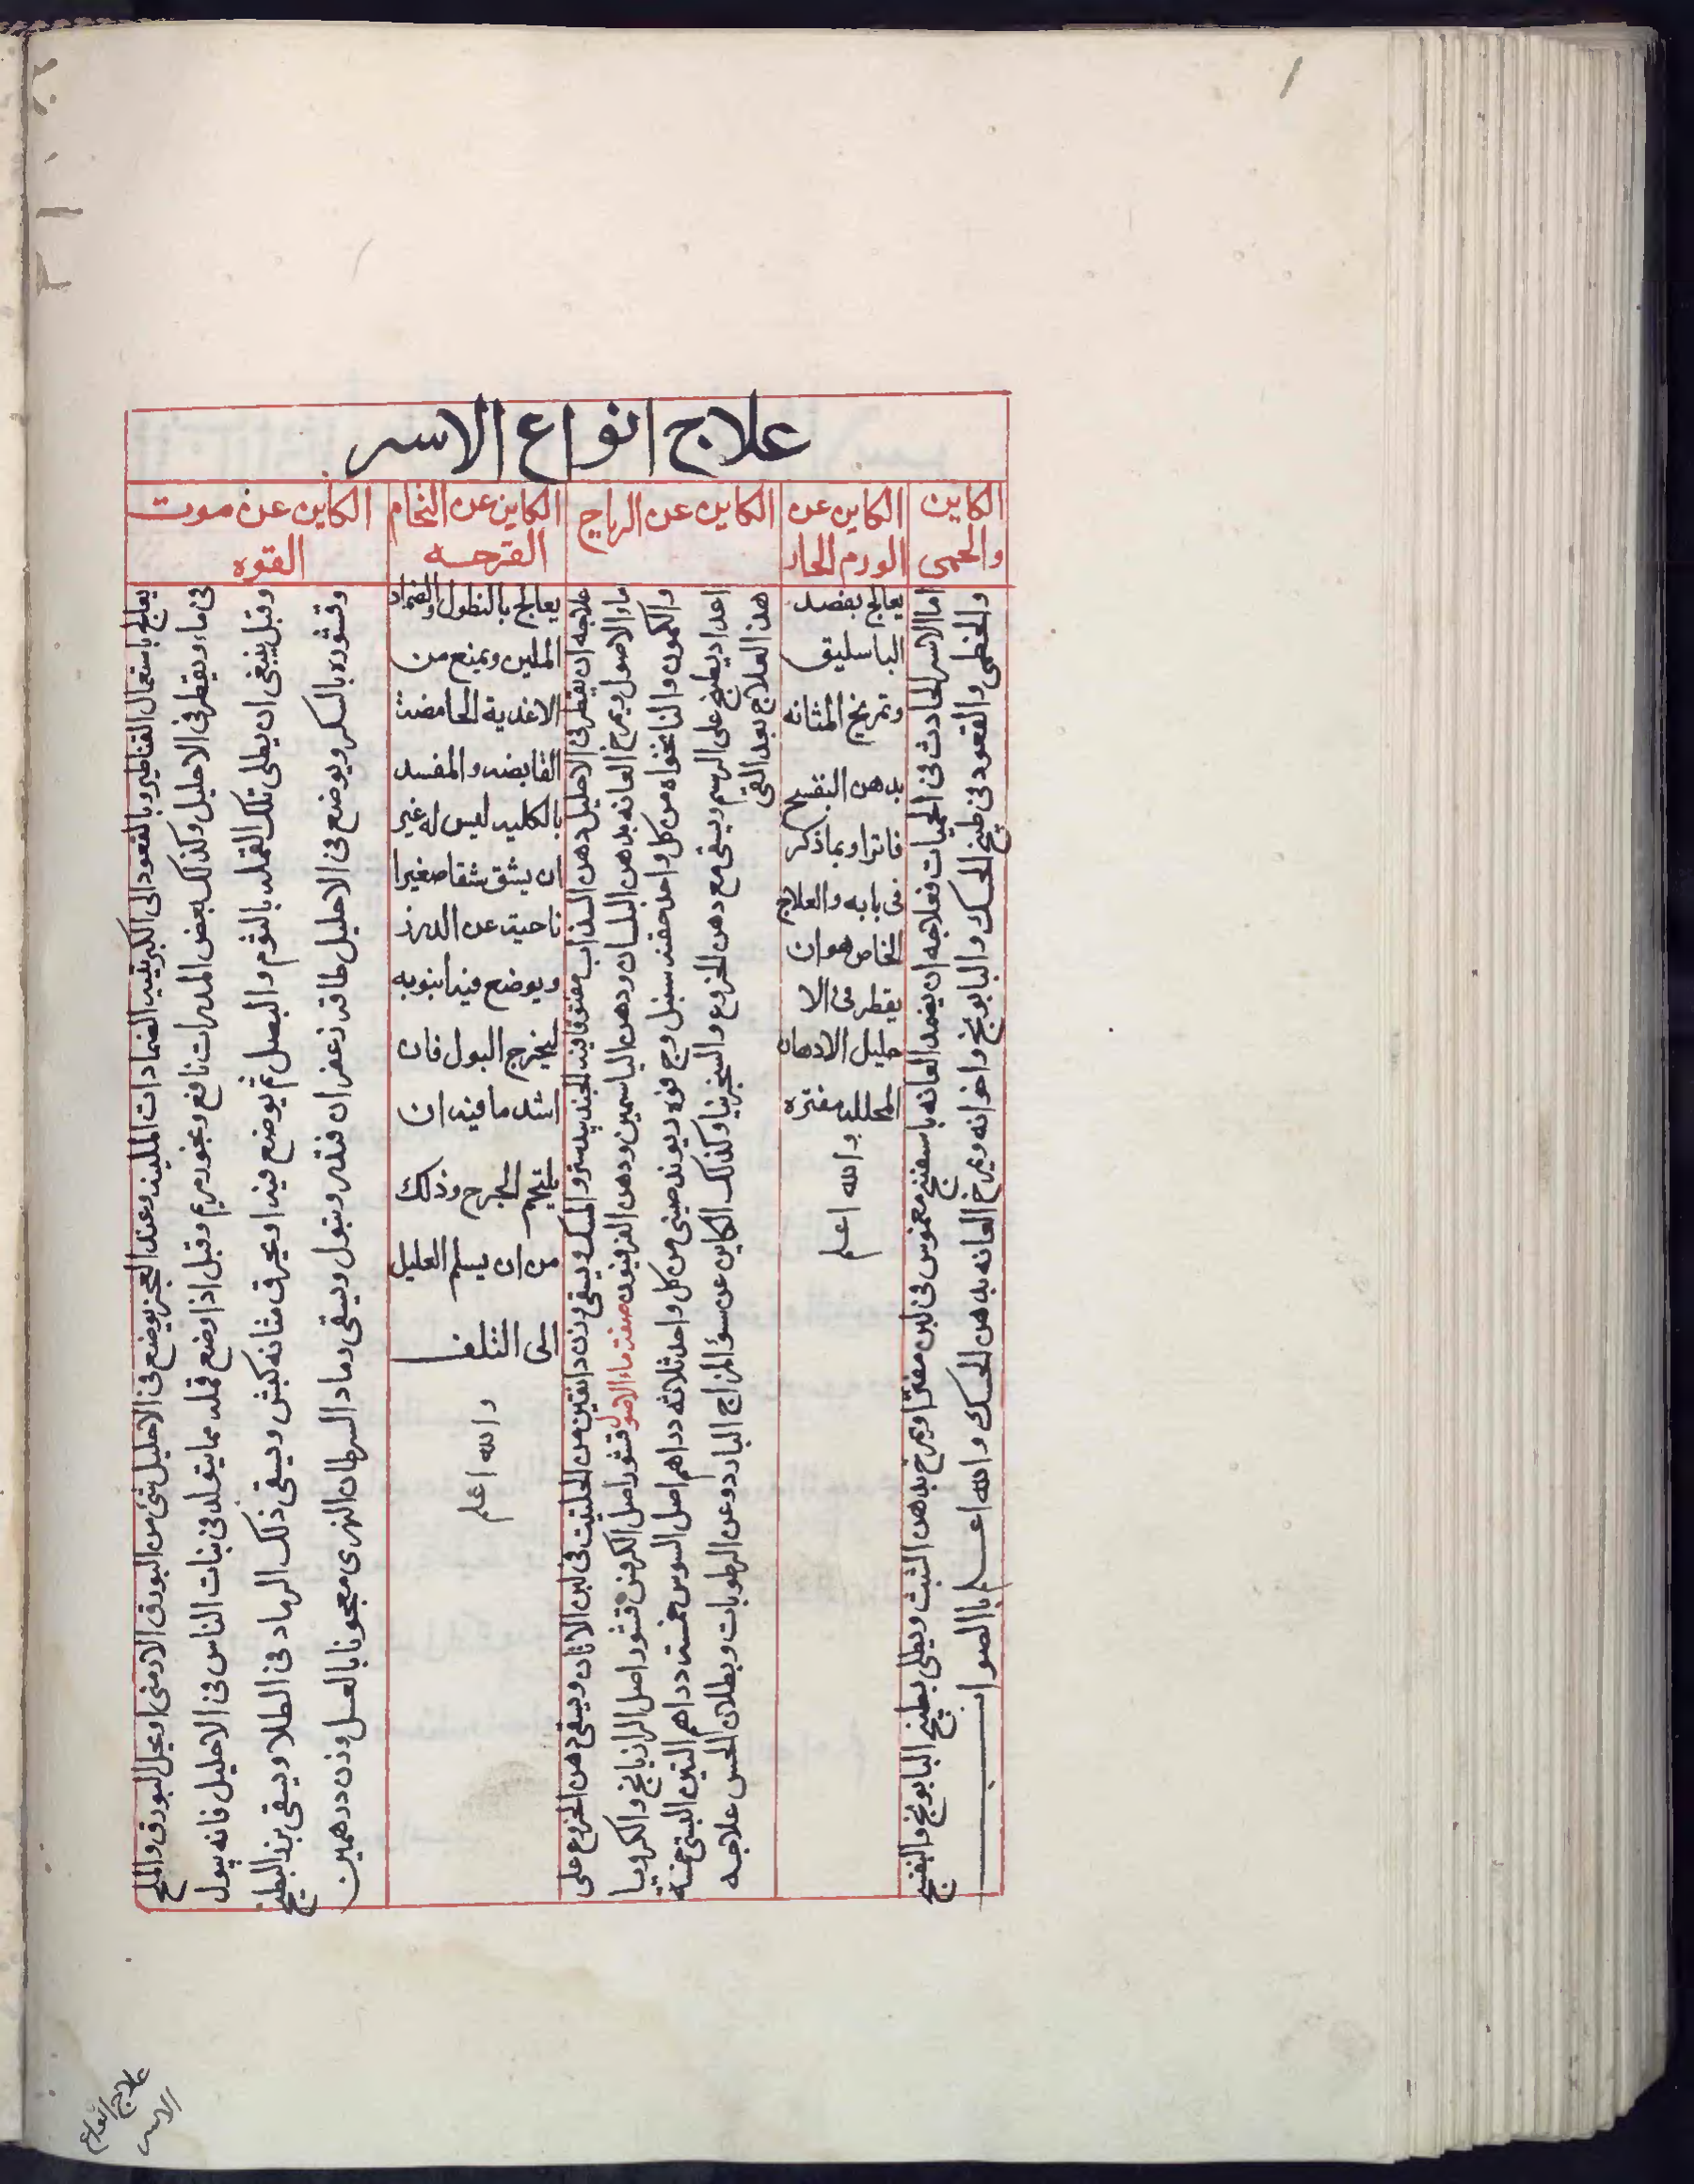 علاج انواع الاسر
الكاين
والحمى
الكاين عن
الورم الحار
الكاين عن الرياح
الكاين عن التحام
القرحه
الكاين عن موت
القوه
اما الاسر الحادث فى الحميات فعلاجه ان يضمد العانه باسفنج مغموس فى لبن مفترا ويمرخ بدهن الشبث ويطلى بطبيخ البابونج والبنفسج
والخطمى والقعود فى طبيخ الحسك والبابونج واخوانه ويمرخ العانه بدهن الحسك والله اعلم بالصواب
يعالج بفصد
الباسليق
وتمريخ المثانه
بدهن البنفسج
فاترا وبما ذكر
فى بابه والعلاج
الخاص هو ان
يقطر فى الا
حليل الادهان
المحلله مفتره
والله اعلم
علاجه ان يقطر فى الاحليل دهن السذاب مفتوقا فيه الجندبيدستر والمسك ويسقى وزن دانقين من الحلتيت فى لبن الاتان ويسقى دهن الخروع على
ماء الاصول ويمرخ العانه بدهن البلسان ودهن الياسمين ودهن الفرفيون صفة ماء الاصول قشور اصل الكرفس قشور اصل الرازيانج والكرويا
والكمون والنانخواه من كل واحد حفنه سنبل وج فوه ريوند صينى من كل واحد ثلاثه دراهم اصل السوس خمسة دراهم التين البستى خمسه
اعداد يطبخ على الرسم ويسقى مع دهن الخروع والسجزنيا وكذلك الكاين عن سؤ المزاج البارد وعن الرطوبات وبطلان الحس علاجه
هذا العلاج بعد القى
يعالج بالنطول والضماد
الملين ويمنع من
الاغذية الحامضة
القابضه والمفسد
بالكليه ليس له غير
ان يشق شقا صغيرا
ناحية عن الدرز
ويوضع فيه انبوبه
ليخرج البول فان
اشد ما فيه ان
وذلك
من ان يسلم العليل
الى التلف
والله اعلم
يعالج باستعمال القناطير وبالقعود الى الكبريتيه الضمادات الملينه وعند العجز يوضع فى الاحليل شئ من البورق الارمنى او يحل البورق والملح
فى ماء ويقطر فى الاحليل وكذلك بعض المدرات نافع وبخور مريم وقيل اذا وضع قمله مما يتولد فى ثياب الناس فى الاحليل فانه يبول
وقيل ينبغى ان يطلى تلك القمله بالثوم والبصل ثم يوضع فيه او يحرق مثانه كبش ويسقى ذلك الرماد فى الطلا ويسقى بزر البطيخ
وقشوره بالسكر ويوضع فى الاحليل طاقه زعفران فتفتر ويبول ويسقى رماد السرطان النهرى معجونا بالعسل وزن درهمين
علاج انواع
الاسر